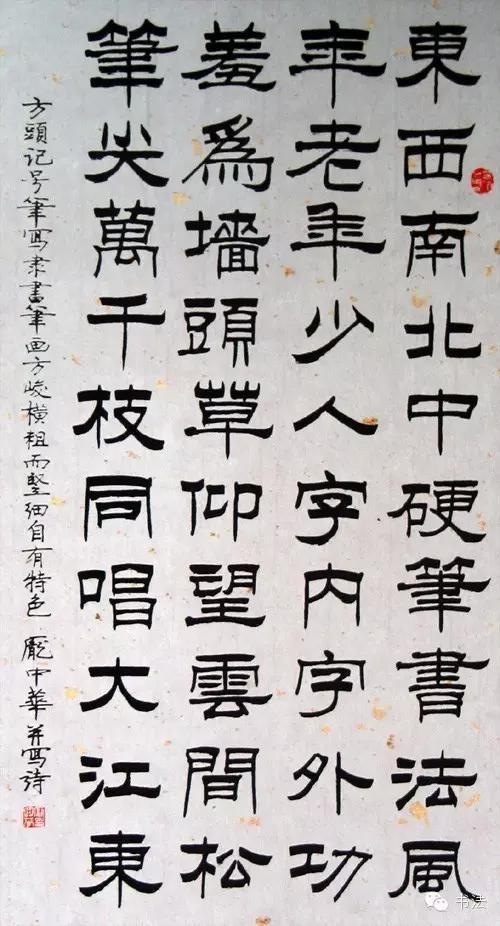 東西南北中硬筆書法風
年老年少人字内字外功
羞爲墻頭草仰望雲間松
筆尖萬千枝同唱大江東
方頭记号筆寫隶書筆画方峻横粗而竪细自有特色 龐中華并寫诗
书法